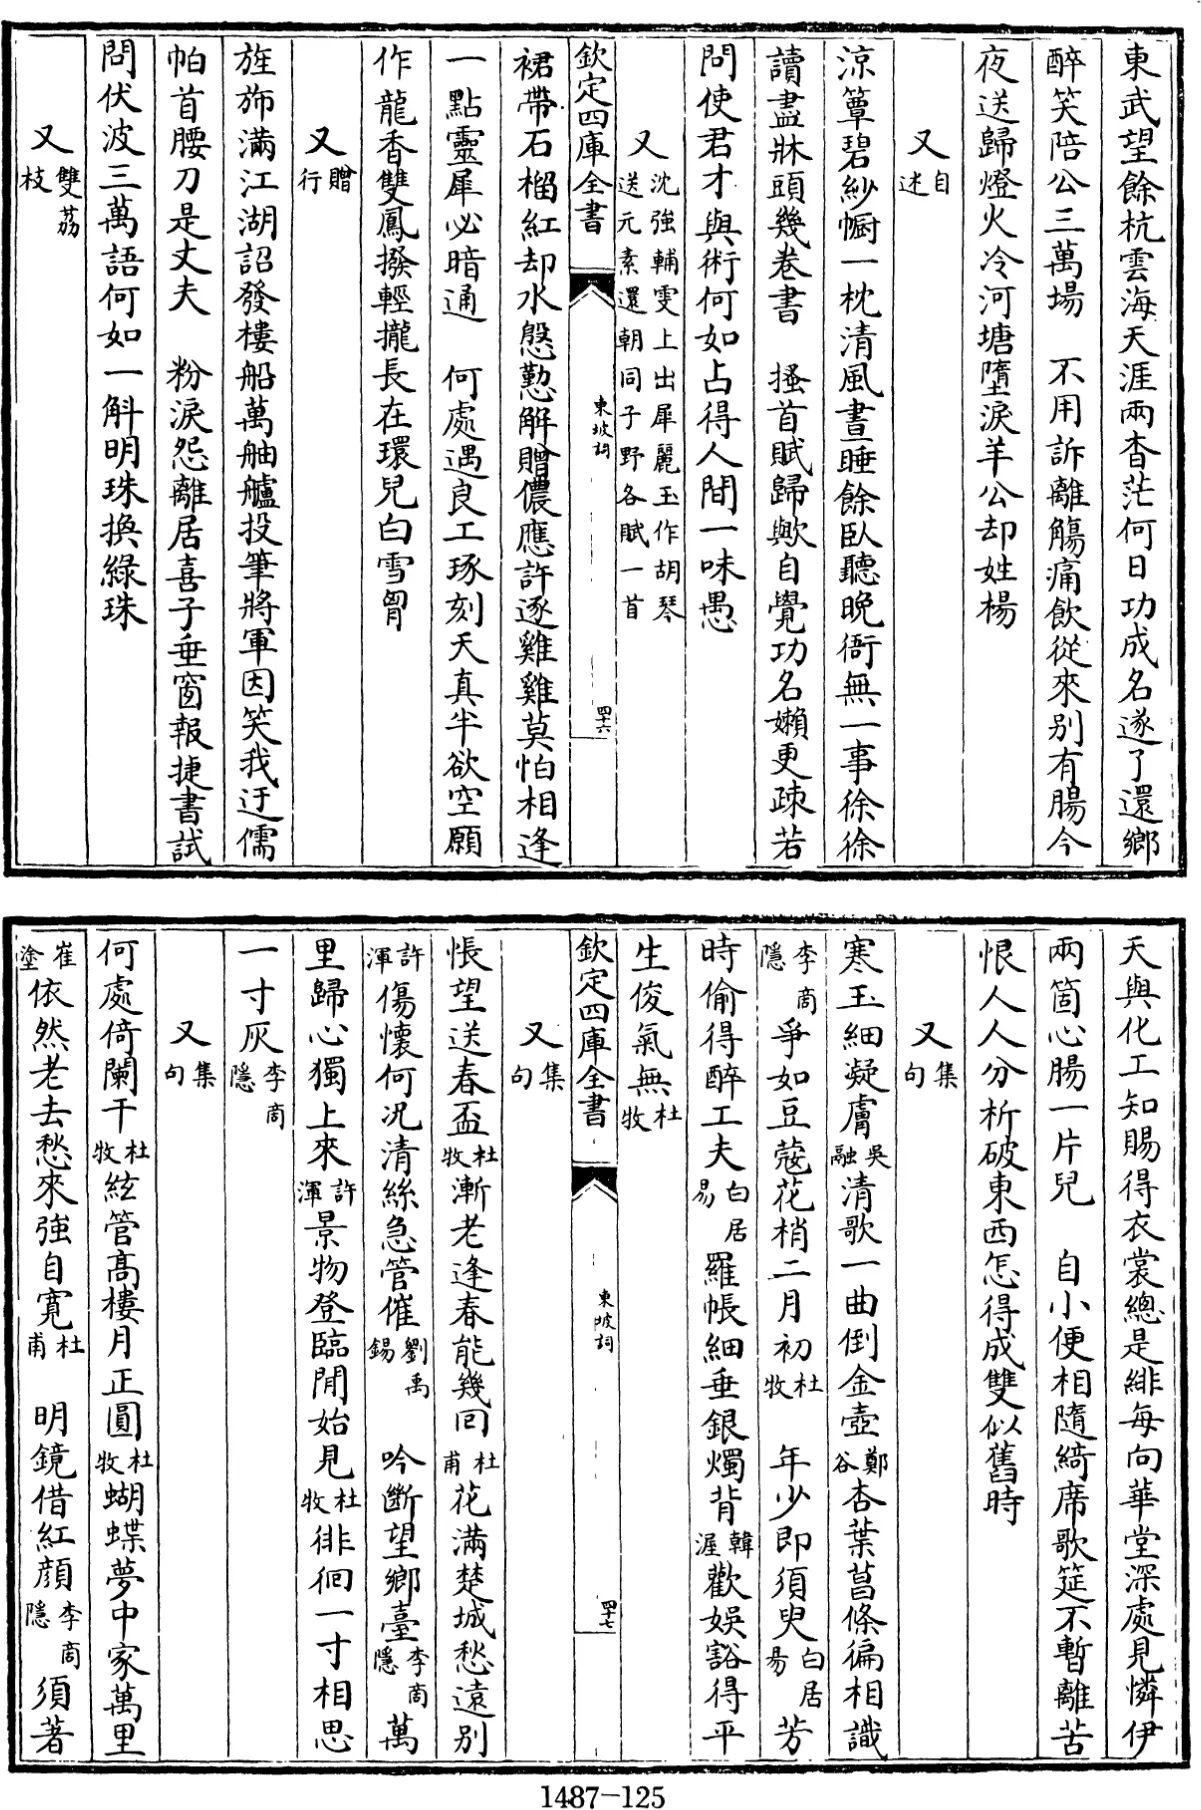 東武望餘杭雲海天涯兩杳茫何日功成名遂了還鄉
醉笑陪公三萬場　不用訴離觴痛飲從來别有腸今
夜送歸燈火冷河塘墮淚羊公却姓楊
又自述
涼簟碧紗㡡一枕清風晝睡餘臥聽晩衙無一事徐徐
讀盡牀頭幾卷書　搔首賦歸歟自覺功名嬾更疎若
問使君才與術何如占得人間一味愚
又沈強輔雯上出犀麗玉作胡琴送元素還朝同子野各賦一首
欽定四庫全書　東坡詞　四十六
裙帶石榴紅却水慇懃解贈儂應許逐雞雞莫怕相逢
一點靈犀必暗通　何處遇良工琢刻天真半欲空願
作龍香雙鳳撥輕攏長在環兒白雪胷
又贈行
旌斾滿江湖詔發樓船萬舳艫投筆將軍因笑我迂儒
帕首腰刀是丈夫　粉淚怨離居喜子垂窗報捷書試
問伏波三萬語何如一斛明珠換綠珠
又雙荔枝
天與化工知賜得衣裳總是緋每向華堂深處見憐伊
兩箇心腸一片兒　自小便相隨綺席歌筵不暫離苦
恨人人分析破東西怎得成雙似舊時
又集句
寒玉細凝膚吳融清歌一曲倒金壺鄭谷杏葉菖條徧相識
李商隱爭如豆蔻花梢二月初杜牧　年少即須臾白居易芳
時偷得醉工夫白居易羅帳細垂銀燭背韓渥歡娛豁得平
生俊氣無杜牧
欽定四庫全書　東坡詞　四十七
又集句
悵望送春盃杜牧漸老逢春能幾回杜甫花滿楚城愁遠别
許渾傷懷何況清絲急管催劉禹錫　吟斷望鄉臺李商隱萬
里歸心獨上來許渾景物登臨閒始見杜牧徘徊一寸相思
一寸灰李商隱
又集句
何處倚闌干杜牧絃管髙樓月正圓杜牧蝴蝶夢中家萬里
崔塗依然老去愁來強自寬杜甫　明鏡借紅顔李商隱須著
1487-125